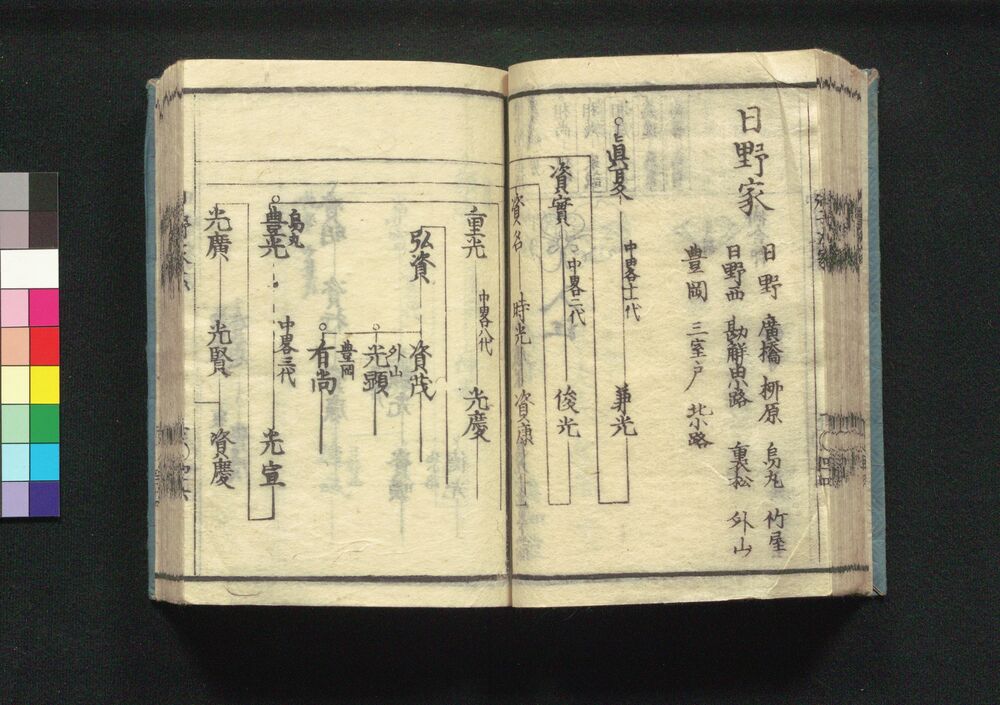 日野家
日野 廣橋 栁原 烏丸 竹屋
日野西 勘解由小路 裏松 外山
豊岡 三室戸 北小路
眞夏 中畧十一代 兼光
資實 中畧二代 俊光
資名 時光 資康
重光 中畧八代 光慶
弘資 資茂
外山
光顕
豊岡
有尚
中畧三代
烏丸
豊光 光宣
光廣 光賢 資慶